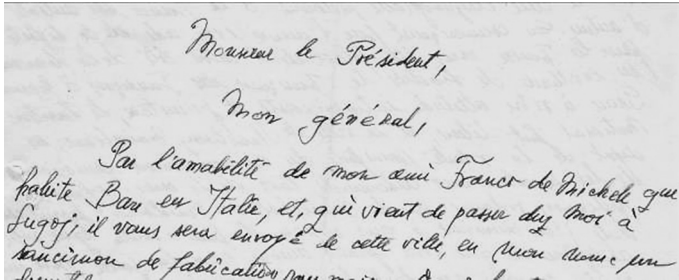 Monsieur le Président,
Mon général,
Par l'amabilité de mon ami Franco de Michele que
habite Bari en Italie, et, qui vient de passer chez moi à
il vous sera envoyé de cette ville, en mon nom un
de fabrication